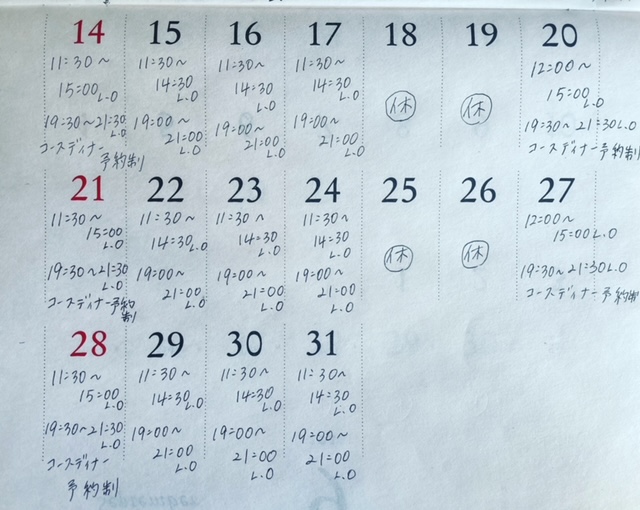 14
11:30～
15:00
L.O
19:30～21:30
L.O
コースディナー
予約制
15
11:30～
14:30
L.O
19:00～
21:00
L.O
16
11:30～
14:30
L.O
19:00～
21:00
L.O
17
11:30～
14:30
L.O
19:00～
21:00
L.O
18
休
19
休
20
12:00～
15:00
L.O
19:30～21:30L.O
コースディナー予約制
21
11:30～
15:00
L.O
19:30～21:30
L.O
コースディナー予約
制
22
11:30～
14:30L.O
19:00～
21:00
L.O
23
11:30～
14:30
L.O
19:00～
21:00
L.O
24
11:30～
14:30
L.O
19:00～
21:00
L.O
25
休
26
休
27
12:00～
15:00L.O
19:30～21:30L.O
コースディナー予約制
28
11:30～
15:00
L.O
19:30～21:30
L.O
コースディナー
予約制
29
11:30～
14:30
L.O
19:00～
21:00
L.O
30
11:30～
14:30
L.O
19:00～
21:00
L.O
31
11:30～
14:30
L.O
19:00～
21:00
L.O